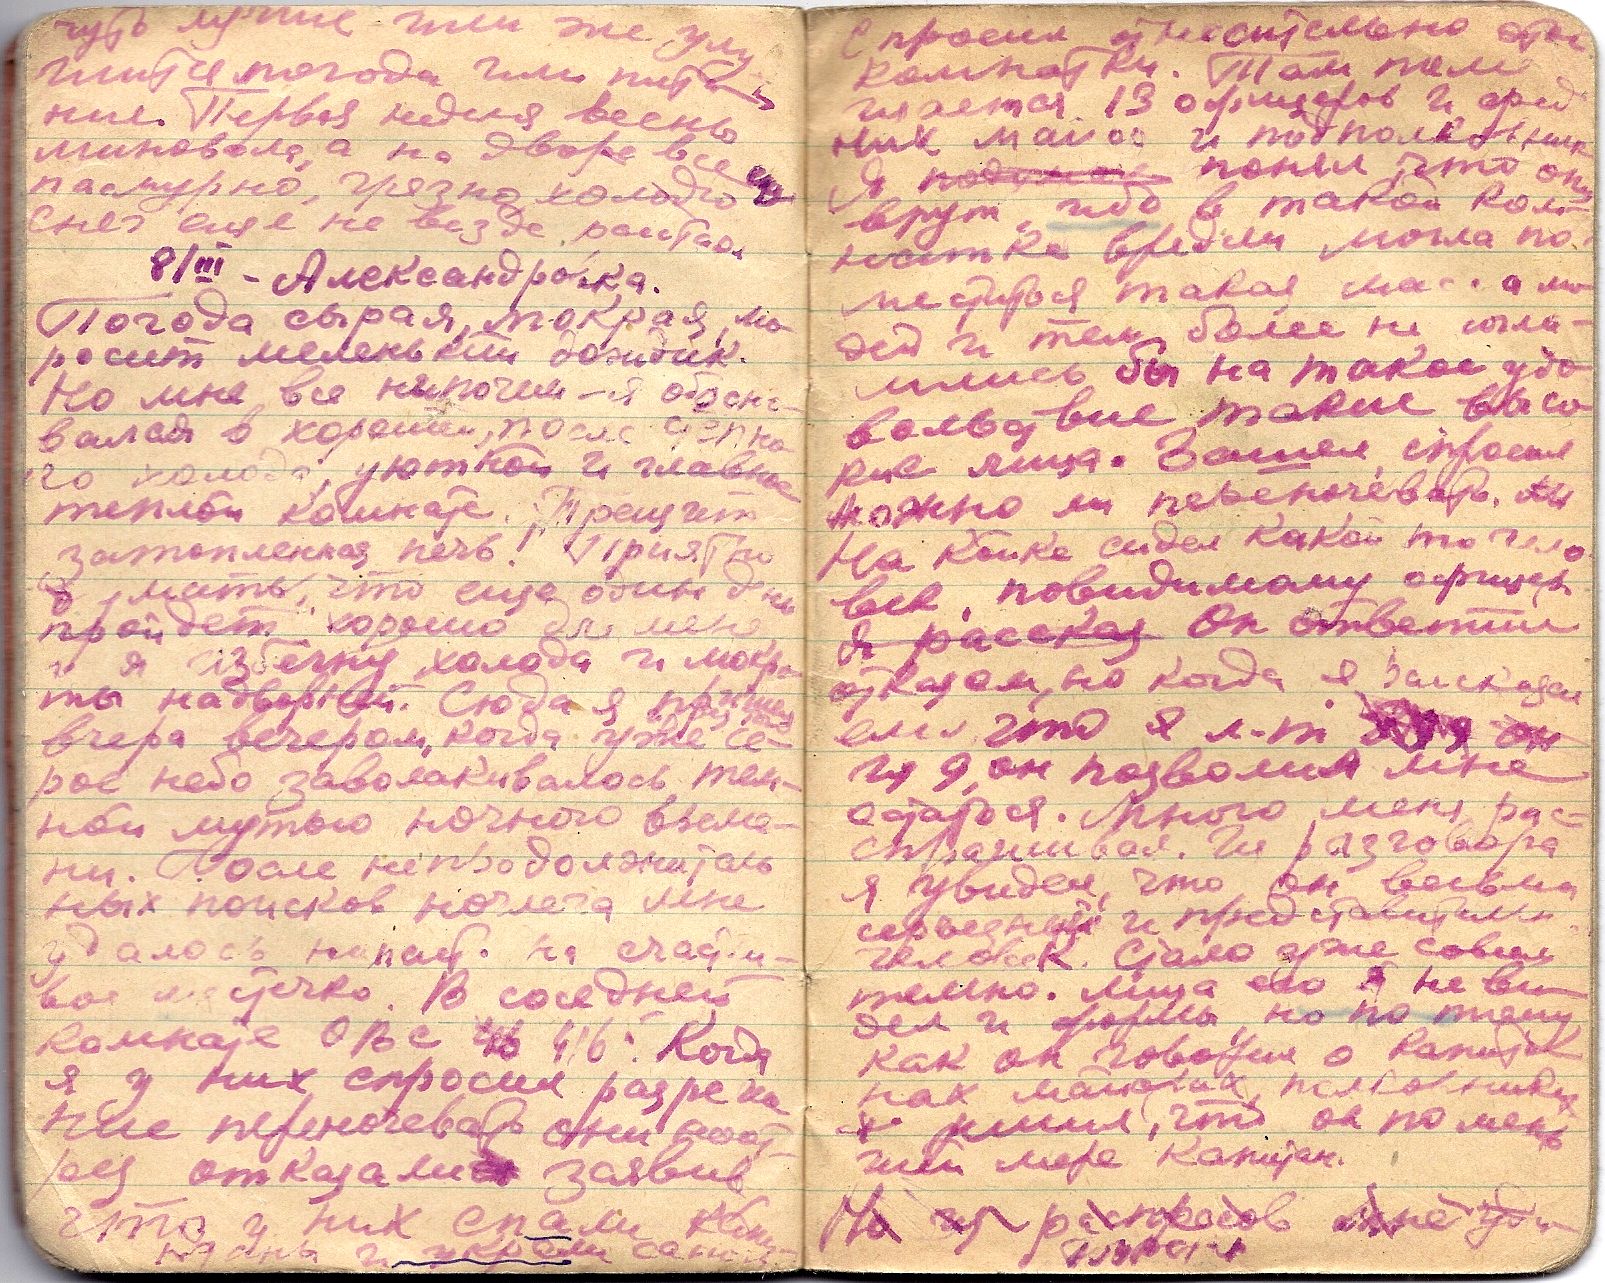 чуть лучше или же улу-
чшится погода или пита-
ние. Первая неделя весны
миновала, а на дворе все еще
пасмурно, грязно, холодно
снег еще не везде растаял
8/III - Александровка.
Погода сырая, мокрая, мо-
росит меленький дождик.
Но мне все нипочем - я обосно-
вался в хорошей, после степно-
го холода, уютной и главное
теплой комнате. Трещит
затопленная печь. Приятно
думать, что еще один день
пройдет хорошо для меня,
и я избегну холода и мокро-
ты надворной. Сюда я пришел
вчера вечером, когда уже се-
рое небо заволакивалось тем-
ной мутью ночного време-
ни. После непродолжитель
ных поисков ночлега мне
удалось напасть на счастли-
вое местечко. В соседней
комнате ОВС
Когда
я у них спросил разреше
ние переночевать они наот-
рез отказались заявив
что у них спали капи-
таны и украли
Спросил относительно этой
комнатки. Там поме
щается 13 офицеров и сред
них майор и подполковник
Я подумал понял, что они
врут, ибо в такой ком-
натке вредли могла по-
меститься такая масса лю-
дей и тем более не согла-
шились бы на такое удо
вольствие такие высо
кие лица. Зашел, спросил
можно ли переночевать.
На койке сидел какой то чело-
век, повидимому офицер.
Я рассказ Он ответил
отказом, но когда я рассказал
ему что я л-т
он позволил мне
остаться. Много меня рас-
спрашивал. Из разговора
я увидел, что он весьма
солидный и представительн.
человек. Стало уже совсем
темно. Лица его я не ви
дел и формы но по тому
как он говорил о капита
нах майорах, полковниках
я решил, что он по мень
шей мере капитан.
Но из распросов мне уда